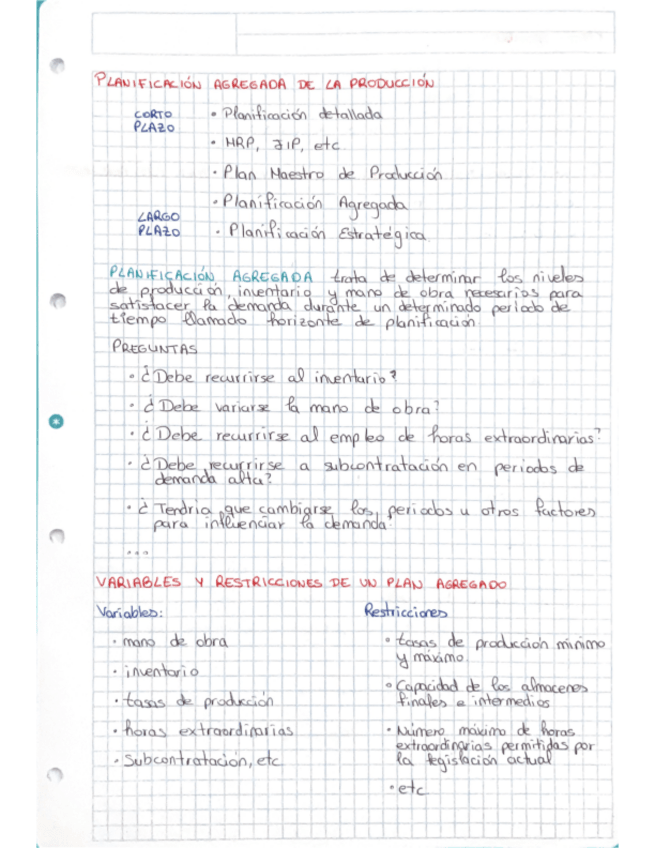 PLANIFICACIÓN AGREGADA DE LA PRODUCCIÓN
CORTO PLAZO
• Planificación detallada
• MRP, JIP, etc
• Plan Maestro de Producción
• Planificación Agregada
LARGO PLAZO
• Planificación Estratégica
PLANIFICACIÓN AGREGADA trata de determinar los niveles
de producción, inventario y mano de obra necesarios para
satisfacer la demanda durante un determinado periodo de
tiempo llamado horizonte de planificación
PREGUNTAS
• ¿Debe recurrirse al inventario?
• ¿Debe variarse la mano de obra?
• ¿Debe recurrirse al empleo de horas extraordinarias?
• ¿Debe recurrirse a subcontratación en periodos de
demanda alta?
• ¿Tendria que cambiarse los periodos u otros factores
para influenciar la demanda?
...
VARIABLES Y RESTRICCIONES DE UN PLAN AGREGADO
Variables:
• mano de obra
• inventario
• tasas de producción
• horas extraordinarias
• Subcontratación, etc
Restricciones
• tasas de producción minimo
y máximo
• Capacidad de los almacenes
finales e intermedios
• Número máximo de horas
extraordinarias permitidas por
la legislación actual
• etc